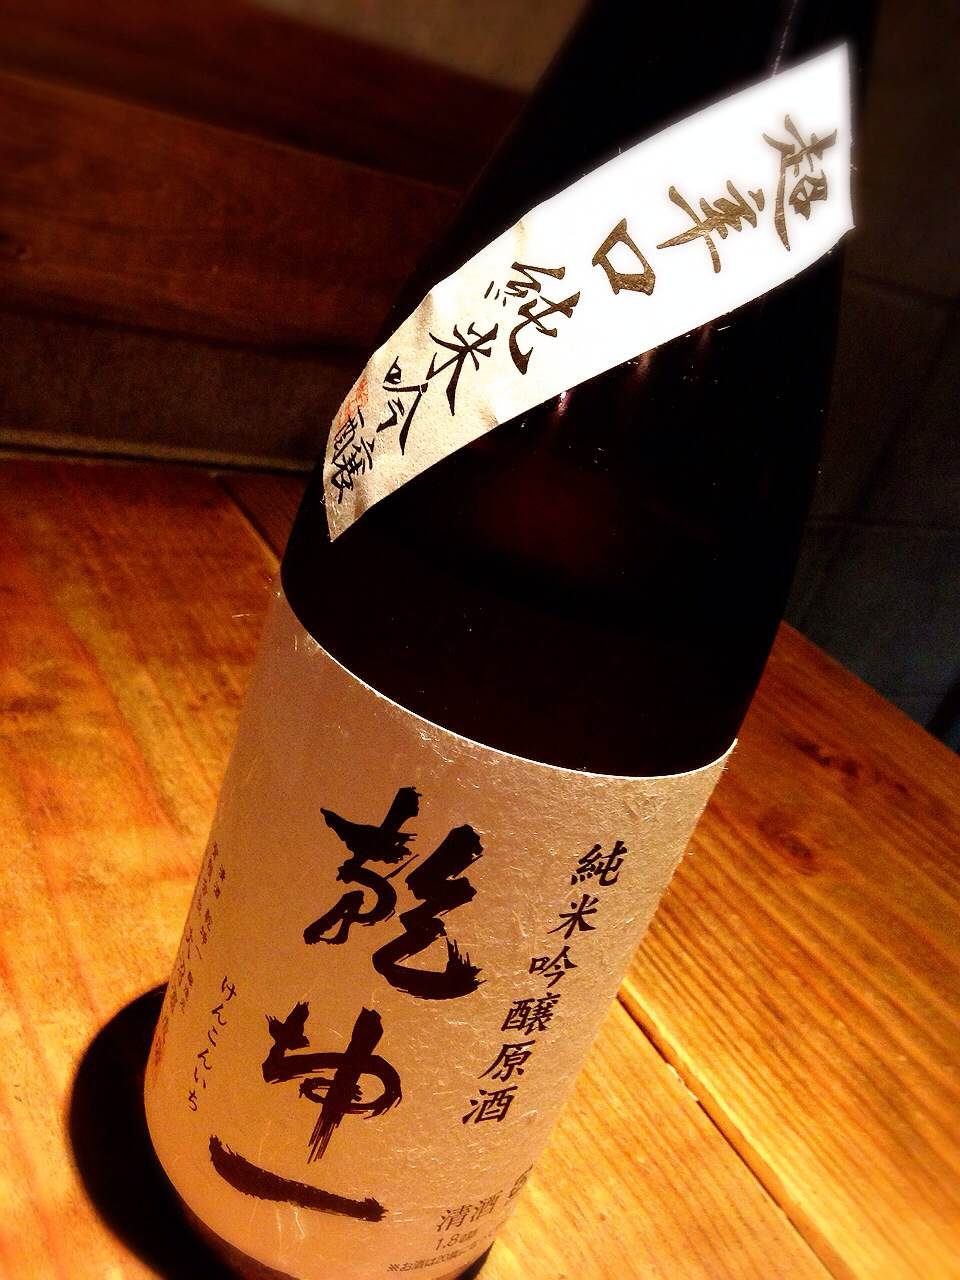 超辛口純米吟醸
純米吟醸原酒
乾坤一
けんこんいち
清酒
1.8